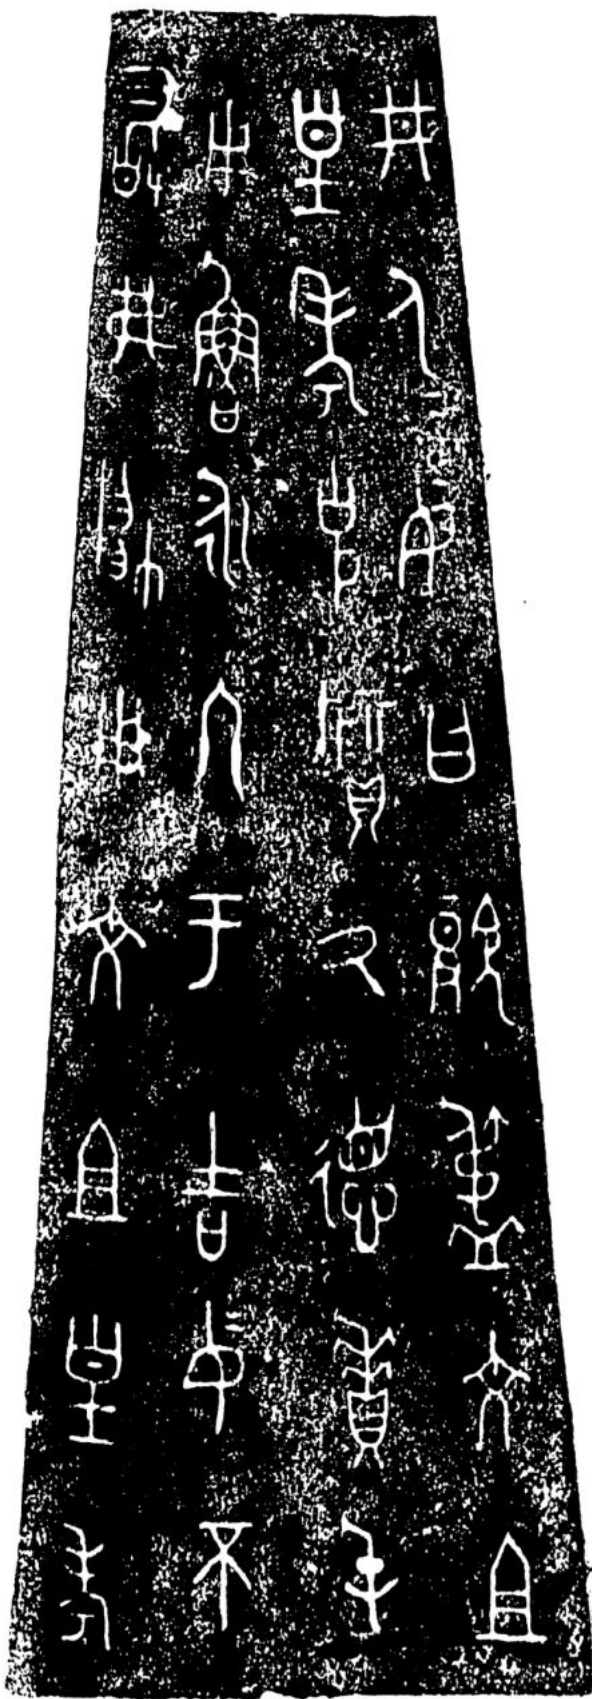 井人妄曰覭盄文且
皇考克質氒德得屯
用魯永冬于吉妄不
敢弗帥用文且皇考